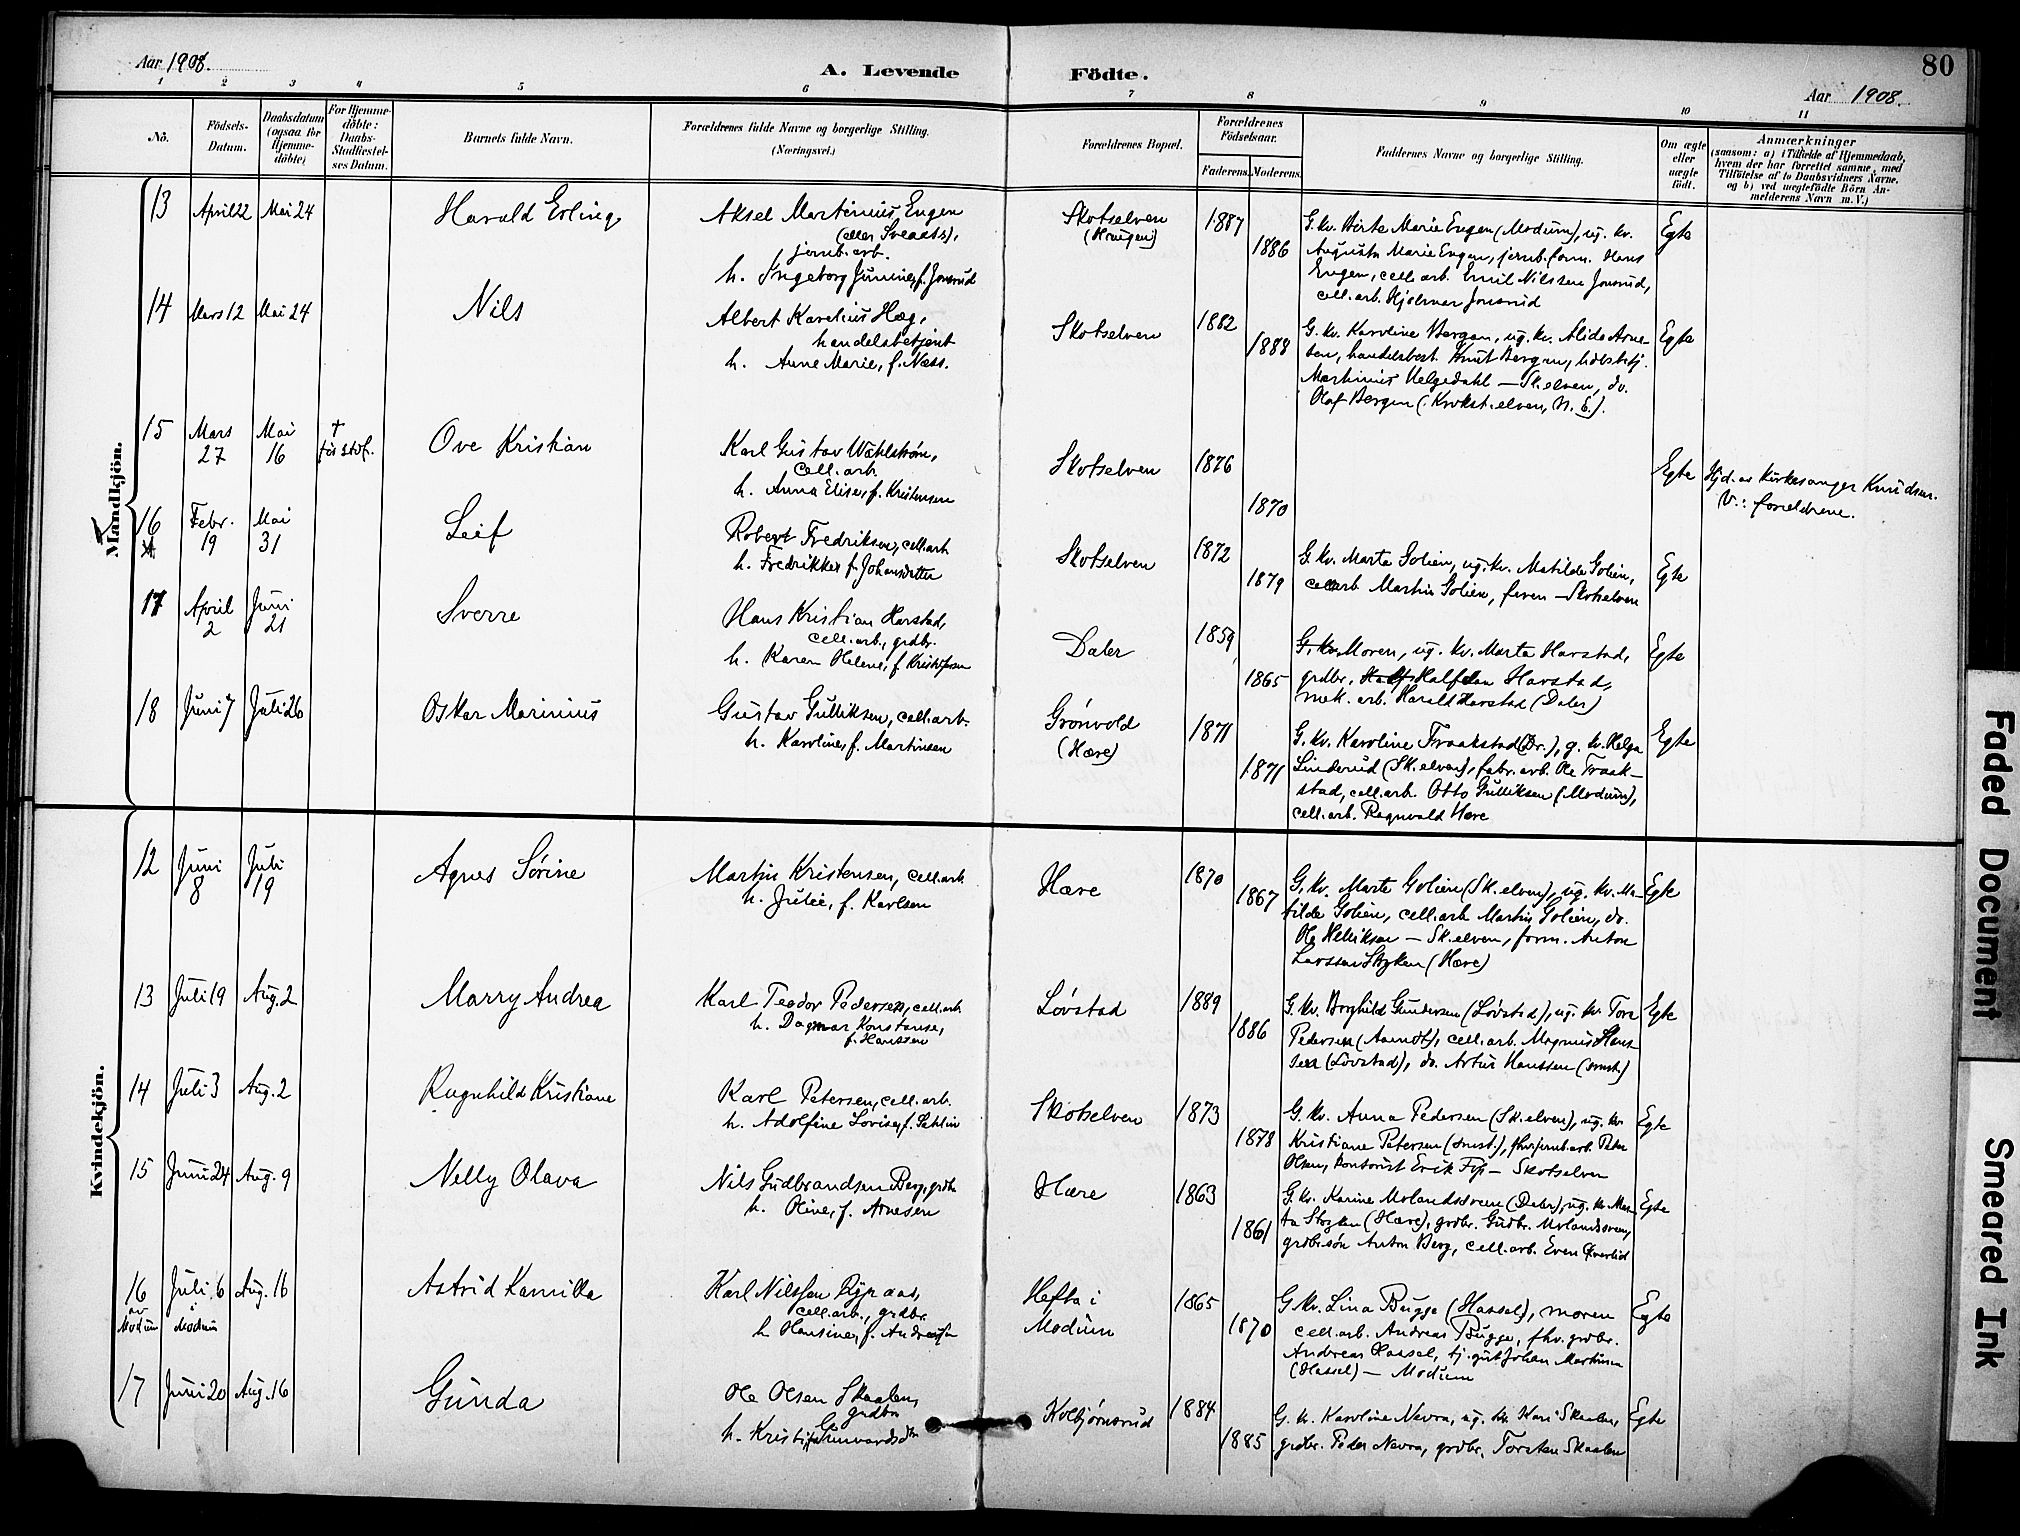 Aar 1908.
A. Levende Födte.
80
Aar 1908.
1 2 3 4 5 6 7 8 9 10 11
No.
Födsels-Datum.
Daabsdatum (ogsaa for Hjemme-döbte)
For Hjemme-döbte: Daabs-Stadfæstel-ses Datum.
Barnets fulde Navn.
Forældrenes fulde Navne og borgerlige Stilling.
(Næringsvei.)
Forældrenes Bopæl.
Forældrenes Födselsaar.
Faderens. Moderens.
Faddernes Navne og borgerlige Stilling.
Om ægte eller uægte födt.
Anmærkninger
(saasom: a) i Tilfælde af Hjemmedaab,
hvem der har forrettet samme, med
Tilföielse af to Daabsvidners Navne,
og b) ved uægtefödte Börn An-
melderens Navn m. V.)
Mandkjön.
13 April 22 Mai 24 Harald Erling
Aksel Martinius Engen
(eller Sveaas),
jernb.arb.
h. Ingeborg Jumine, f. Jonsrud
Skotselven
(Haugen)
1887
1886
G. kv. Birte Marie Engen (Modum), ug. kv.
Augusta Marie Engen, jernb.form. Hans
Engen, cell.arb. Emil Nilssen Jonsrud,
cell.arb. Hjalmar Jonsrud
Egte
14 Mars 12 Mai 24 Nils
Albert Karelius Hæg,
handelsbetjent
h. Anne Marie, f. Næss.
Skotselven
1882
1888
G. kv. Karoline Bergan, ug. kv. Alida Arne-
sen, handelsbest. Knut Bergan,
Martinius Helgedahl — Sk.elven, do.
Olaf Bergan (Krokst.elven, N. E.).
Egte
15 Mars 27 Mai 16 † før stdf. Ove Kristian
Karl Gustav Wahlstrøm,
cell.arb.
h. Anna Elise, f. Kristensen
Skotselven
1876
1870
Egte
Hjd. av kirkesanger Knudsen.
V.: forældrene.
16 Febr. 19 Mai 31 Leif
Robert Fredriksen, cell.arb.
h. Fredrikke, f. Johansdatter
Skotselven
1872
1879
G. kv. Marta Golien, ug. kv. Matilde Golien,
cell.arb. Martin Golien, faren — Skotselven
Egte
17 April 2 Juni 21 Sverre
Hans Kristian Harstad,
cell.arb., grdbr.
h. Karen Helene, f. Kristofersen
Daler
1859
1865
G. kv. Moren, ug. kv. Marta Harstad,
grdbr. Halfdan Harstad,
mek. arb. Harald Harstad (Daler)
Egte
18 Juni 7 Juli 26 Oskar Marinius
Gustav Gulliksen, cell.arb.
h. Karoline, f. Martinsen
Grønvold
(Hære)
1871
1871
G. kv. Karoline Fraakstad (Dr.), g. kv. Helga
Linderud (Sk.elven), fabr.arb. Ole Fraak-
stad, cell.arb. Otto Gulliksen (Modum),
cell.arb. Ragnvald Hære
Egte
Kvindekjön.
12 Juni 8 Juli 19 Agnes Sørine
Martin Kristensen, cell.arb.
h. Julie, f. Karlsen
Hære
1870
1867
G. kv. Marta Golien (Sk.elven), ug. kv. Ma-
tilde Golien, cell.arb. Martin Golien, do.
Ole Helliksen — Sk.elven, form. Anton
Larssen Stryken (Hære)
Egte
13 Juli 19 Aug. 2 Marry Andrea
Karl Teodor Pedersen, cell.arb.
h. Dagmar Konstanse,
f. Hanssen
Løvstad
1889
1886
G. kv. Borghild Gundersen (Løvstad), ug. kv. Tora
Pedersen (Aamot), cell.arb. Magnus Hans-
sen (Løvstad), do. Artur Hanssen (smst.)
Egte
14 Juli 3 Aug. 2 Ragnhild Kristiane
Karl Petersen, cell.arb.
h. Adolfine Lovise, f. Sahlin
Skotselven
1873
1878
G. kv. Anna Pedersen (Sk.elven), ug. kv.
Kristiane Petersen (smst.), jernb.arb. Peter
Olsen, kontorist Erik — Skotselven
Egte
15 Juni 24 Aug. 9 Nelly Olava
Nils Gudbrandsen Berg, grdbr.
h. Oline, f. Arnesen
Hære
1863
1861
G. kv. Karine Molandsveen (Daler), ug. kv. Mar-
ta Stryken (Hære), grdbr. Gudbr. Molandsveen,
grdbr.søn Anton Berg, cell.arb. Even
Egte
16 av Modum Juli 6 i Modum Aug. 16 Astrid Kamilla
Karl Nilssen Ryraas,
cell.arb., grdbr.
h. Hansine, f. Andersen
Hefta i
Modum
1865
1870
G. kv. Lina Bugge (Hassel), moren
cell.arb. Andreas Bugge, fhv. grdbr.
Andreas Hassel, tj.gut Johan Martinsen
(Hassel) — Modum
Egte
17 Juni 20 Aug. 16 Gunda
Ole Olsen Skaalen,
grdbr.
h. Kristi
Kolbjørnsrud
1884
1885
G. kv. Karoline Navra, ug. kv. Kari Skaalen,
grdbr. Peder Navra, grdbr. Torsten Skaalen
Egte
Faded Document
Smeared Ink